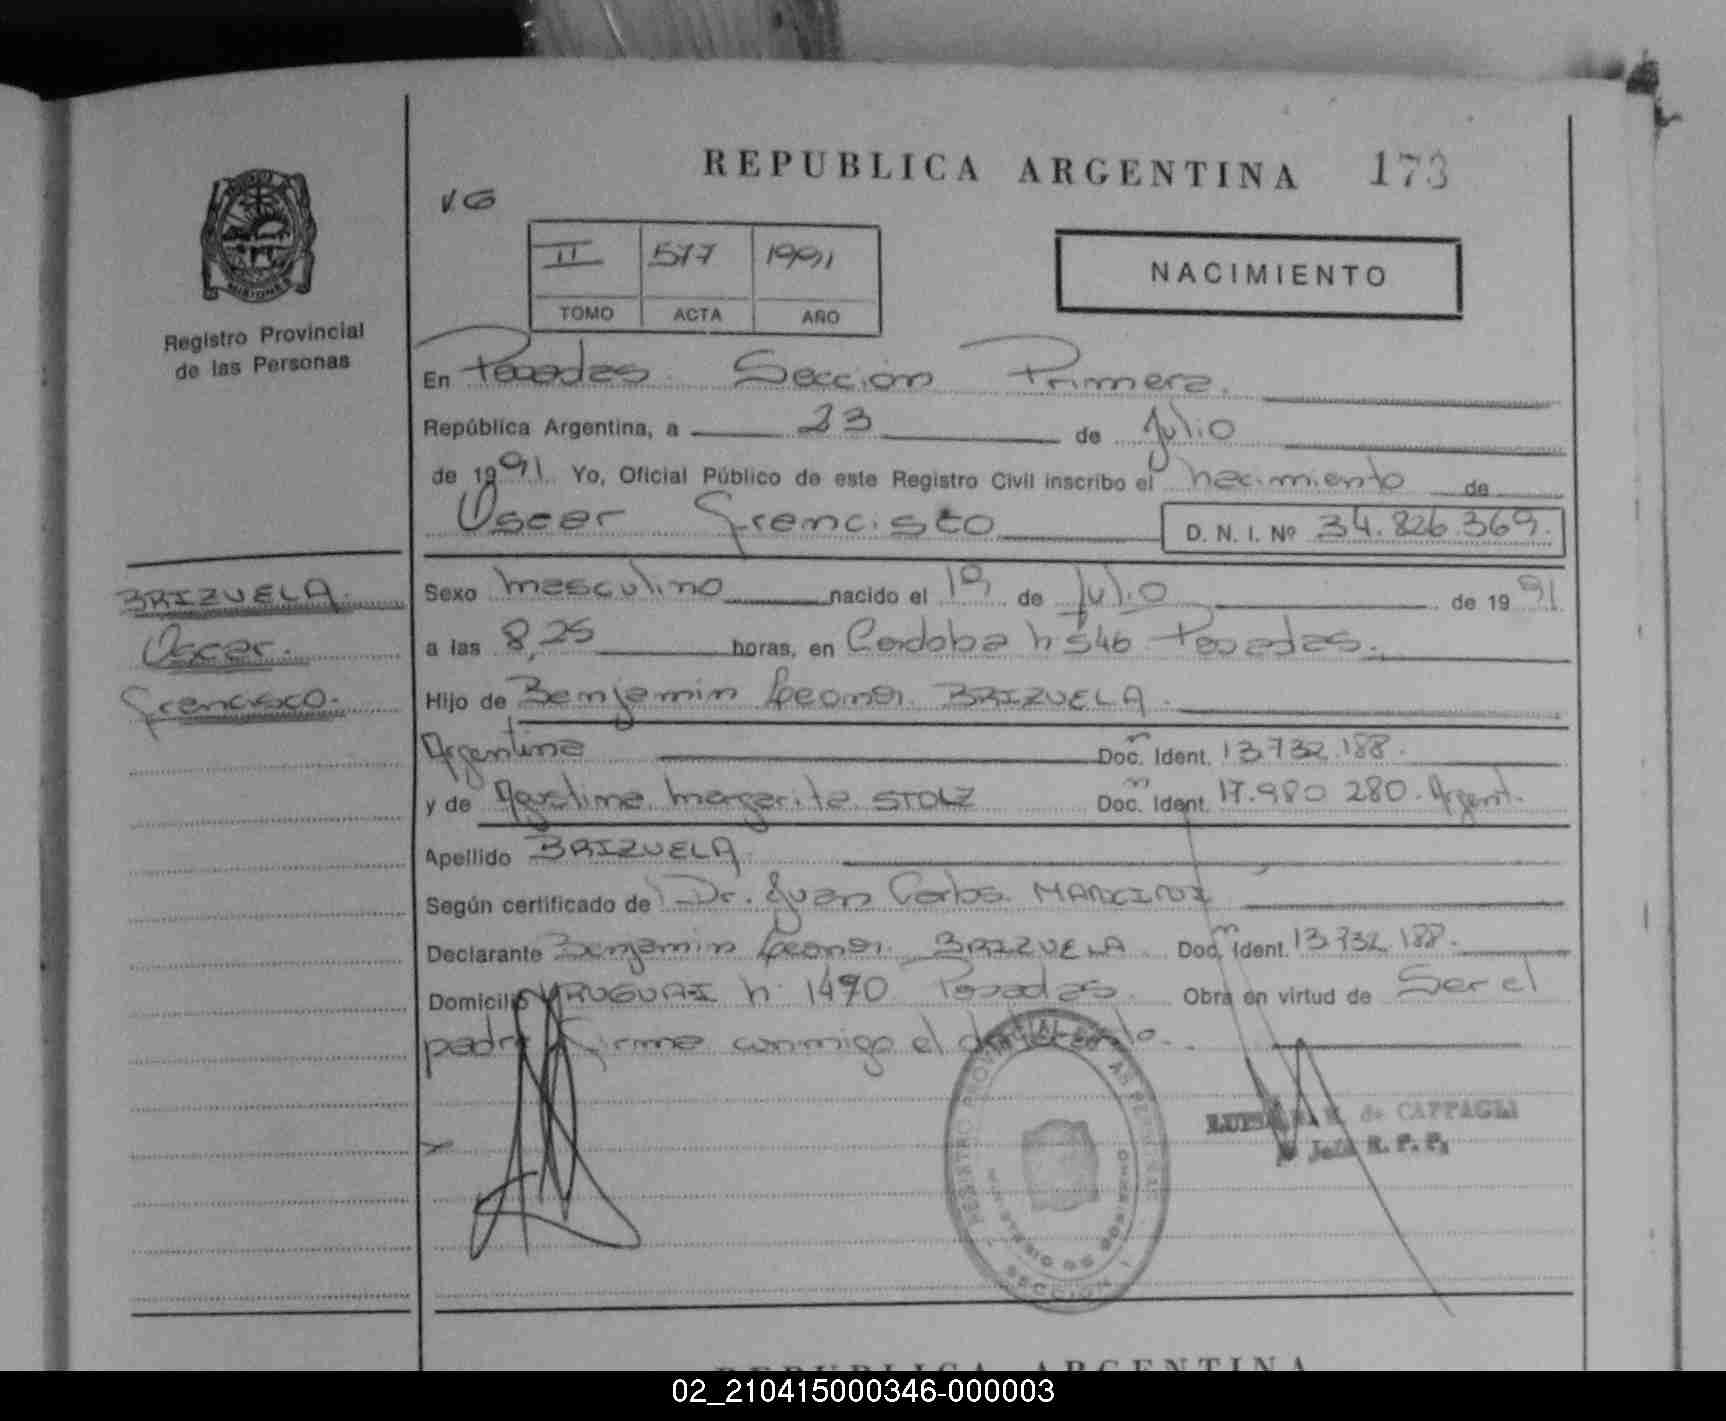 REPUBLICA ARGENTINA 173
VG
II 577 1991
TOMO ACTA AÑO
NACIMIENTO
MISIONES
Registro Provincial
de las Personas
En Posadas Sección Primera.
República Argentina, a 23 de Julio
de 1991 Yo, Oficial Público de este Registro Civil inscribo el nacimiento de
Oscar Francisco D. N. I. Nº 34.826.369.
BRIZUELA
Oscar.
Francisco.
Sexo masculino nacido el 19 de Julio de 1991
a las 8,25 horas, en Cordoba n 546 Posadas.
Hijo de Benjamin BRIZUELA.
Argentina Doc. Ident. 13.732.188.
y de Agustina Margarita STOLZ Doc. Ident. 17.980 280. Argent.
Apellido BRIZUELA
Según certificado de Dr. Juan Carlos MANCINI
Declarante Benjamin BRIZUELA. Doc. Ident. 13.732.188.
Domicilio URUGUAI n 1490 Posadas. Obra en virtud de Ser el
padre Firma conmigo el
de CAFFAGLI
Jefe R. P. P.
REPUBLICA ARGENTINA
02_210415000346-000003